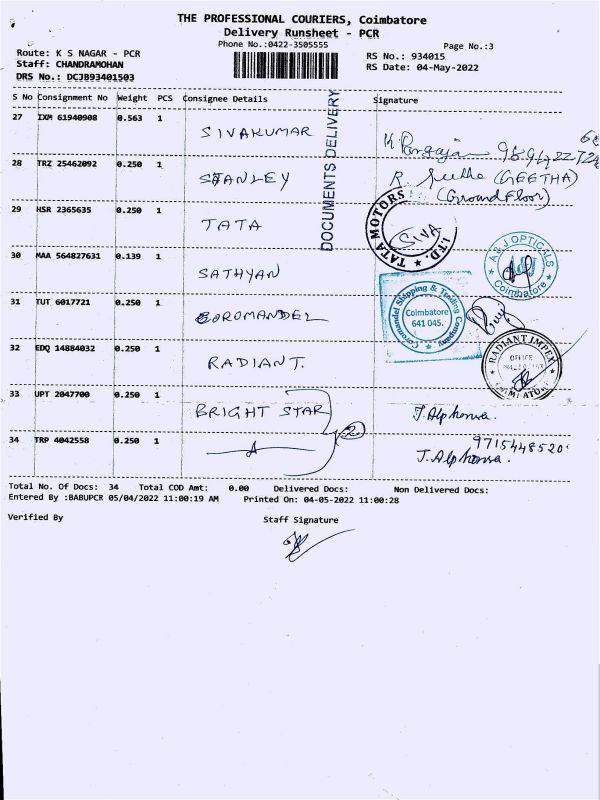 THE PROFESSIONAL COURIERS, Coimbatore
Delivery Runsheet - PCR
Phone No.:0422-3505555
Page No.:3
Route: K S NAGAR - PCR
RS No.: 934015
Staff: CHANDRAMOHAN
RS Date: 04-May-2022
DRS No.: DCJB93401503
S No Consignment No Weight PCS Consignee Details Signature
DOCUMENTS DELIVERY
27 IXM 61940908 0.563 1
SIVAKUMAR
28 TRZ 25462092 0.250 1
STANLEY
R. Geetha (GEETHA)
(Ground Floor)
29 HSR 2365635 0.250 1
TATA
TATA MOTORS LTD.
SIVA
30 MAA 564827631 0.139 1
SATHYAN
A & J OPTICALS
Coimbatore
31 TUT 6017721 0.250 1
COROMANDEL
Coromandel Shipping & Trading Company
Coimbatore
641 045.
32 EDQ 14884032 0.250 1
RADIANT.
RADIANT IMPEX
OFFICE
33 UPT 2047700 0.250 1
BRIGHT STAR
2
J. Alphonsa.
34 TRP 4042558 0.250 1
9715448520
J. Alphonsa.
Total No. Of Docs: 34 Total COD Amt: 0.00 Delivered Docs: Non Delivered Docs:
Entered By :BABUPCR 05/04/2022 11:00:19 AM Printed On: 04-05-2022 11:00:28
Verified By
Staff Signature